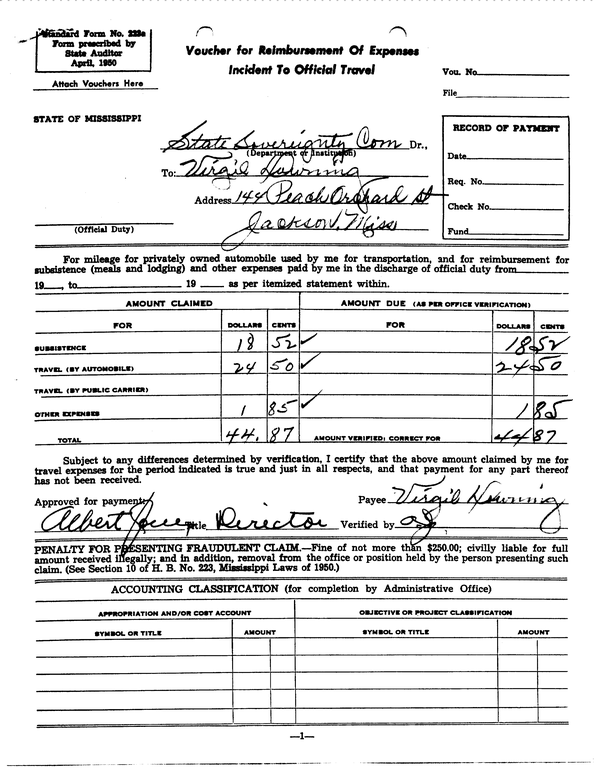 Standard Form No. 223a
Form prescribed by
State Auditor
April, 1950
Attach Vouchers Here
Voucher for Reimbursement Of Expenses
Incident To Official Travel
Vou. No.
File
STATE OF MISSISSIPPI
State Sovereignty Com Dr.,
(Department or Institution)
To: Virgil Downing
Address 144 Peach Orchard St
Jackson, Miss
(Official Duty)
RECORD OF PAYMENT
Date
Req. No.
Check No.
Fund
For mileage for privately owned automobile used by me for transportation, and for reimbursement for
subsistence (meals and lodging) and other expenses paid by me in the discharge of official duty from
19 , to 19 as per itemized statement within.
AMOUNT CLAIMED AMOUNT DUE (AS PER OFFICE VERIFICATION)
FOR DOLLARS CENTS FOR DOLLARS CENTS
SUBSISTENCE 18 52 ✓ 18 52
TRAVEL (BY AUTOMOBILE) 24 50 ✓ 24 50
TRAVEL (BY PUBLIC CARRIER)
OTHER EXPENSES 1 85 ✓ 1 85
TOTAL 44. 87 AMOUNT VERIFIED: CORRECT FOR 44 87
Subject to any differences determined by verification, I certify that the above amount claimed by me for
travel expenses for the period indicated is true and just in all respects, and that payment for any part thereof
has not been received.
Approved for payment: Payee Virgil Downing
Albert Jones Title Director Verified by
PENALTY FOR PRESENTING FRAUDULENT CLAIM.—Fine of not more than $250.00; civilly liable for full
amount received illegally; and in addition, removal from the office or position held by the person presenting such
claim. (See Section 10 of H. B. No. 223, Mississippi Laws of 1950.)
ACCOUNTING CLASSIFICATION (for completion by Administrative Office)
APPROPRIATION AND/OR COST ACCOUNT OBJECTIVE OR PROJECT CLASSIFICATION
SYMBOL OR TITLE AMOUNT SYMBOL OR TITLE AMOUNT
—1—